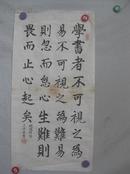 學書者不可視之為
易不可視之為難易
則忽而怠心生難則
畏而止心起矣